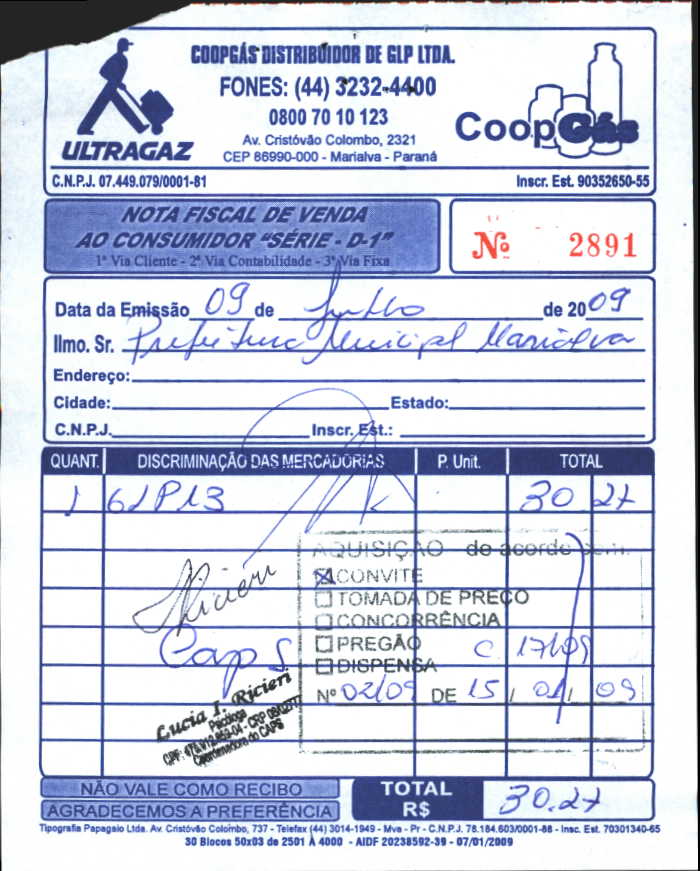 COOPGÁS DISTRIBUIDOR DE GLP LTDA.
FONES: (44) 3232-4400
0800 70 10 123
Av. Cristóvão Colombo, 2321
CEP 86990-000 - Marialva - Paraná
ULTRAGAZ
CoopGás
C.N.P.J. 07.449.079/0001-81 Inscr. Est. 90352650-55
NOTA FISCAL DE VENDA
AO CONSUMIDOR "SÉRIE - D-1"
1ª Via Cliente - 2ª Via Contabilidade - 3ª Via Fixa
Nº 2891
Data da Emissão 09 de Julho de 2009
Ilmo. Sr. Prefeitura Municipal Marialva
Endereço:
Cidade: Estado:
C.N.P.J. Inscr. Est.:
QUANT. DISCRIMINAÇÃO DAS MERCADORIAS P. Unit. TOTAL
1 GLP13 30 27
AQUISIÇÃO de acordo com:
CONVITE
TOMADA DE PREÇO
CONCORRÊNCIA
PREGÃO C 17/09
DISPENSA
Nº 02/09 DE 15 / 01 / 09
Ricieri
Caps
Lucia I. Ricieri
Psicóloga
Coordenadora do CAPS
NÃO VALE COMO RECIBO
AGRADECEMOS A PREFERÊNCIA
TOTAL R$ 30.27
Tipografia Papagaio Ltda. Av. Cristóvão Colombo, 737 - Telefax (44) 3014-1949 - Mva - Pr - C.N.P.J. 78.184.603/0001-88 - Insc. Est. 70301340-65
30 Blocos 50x03 de 2501 À 4000 - AIDF 20238592-39 - 07/01/2009